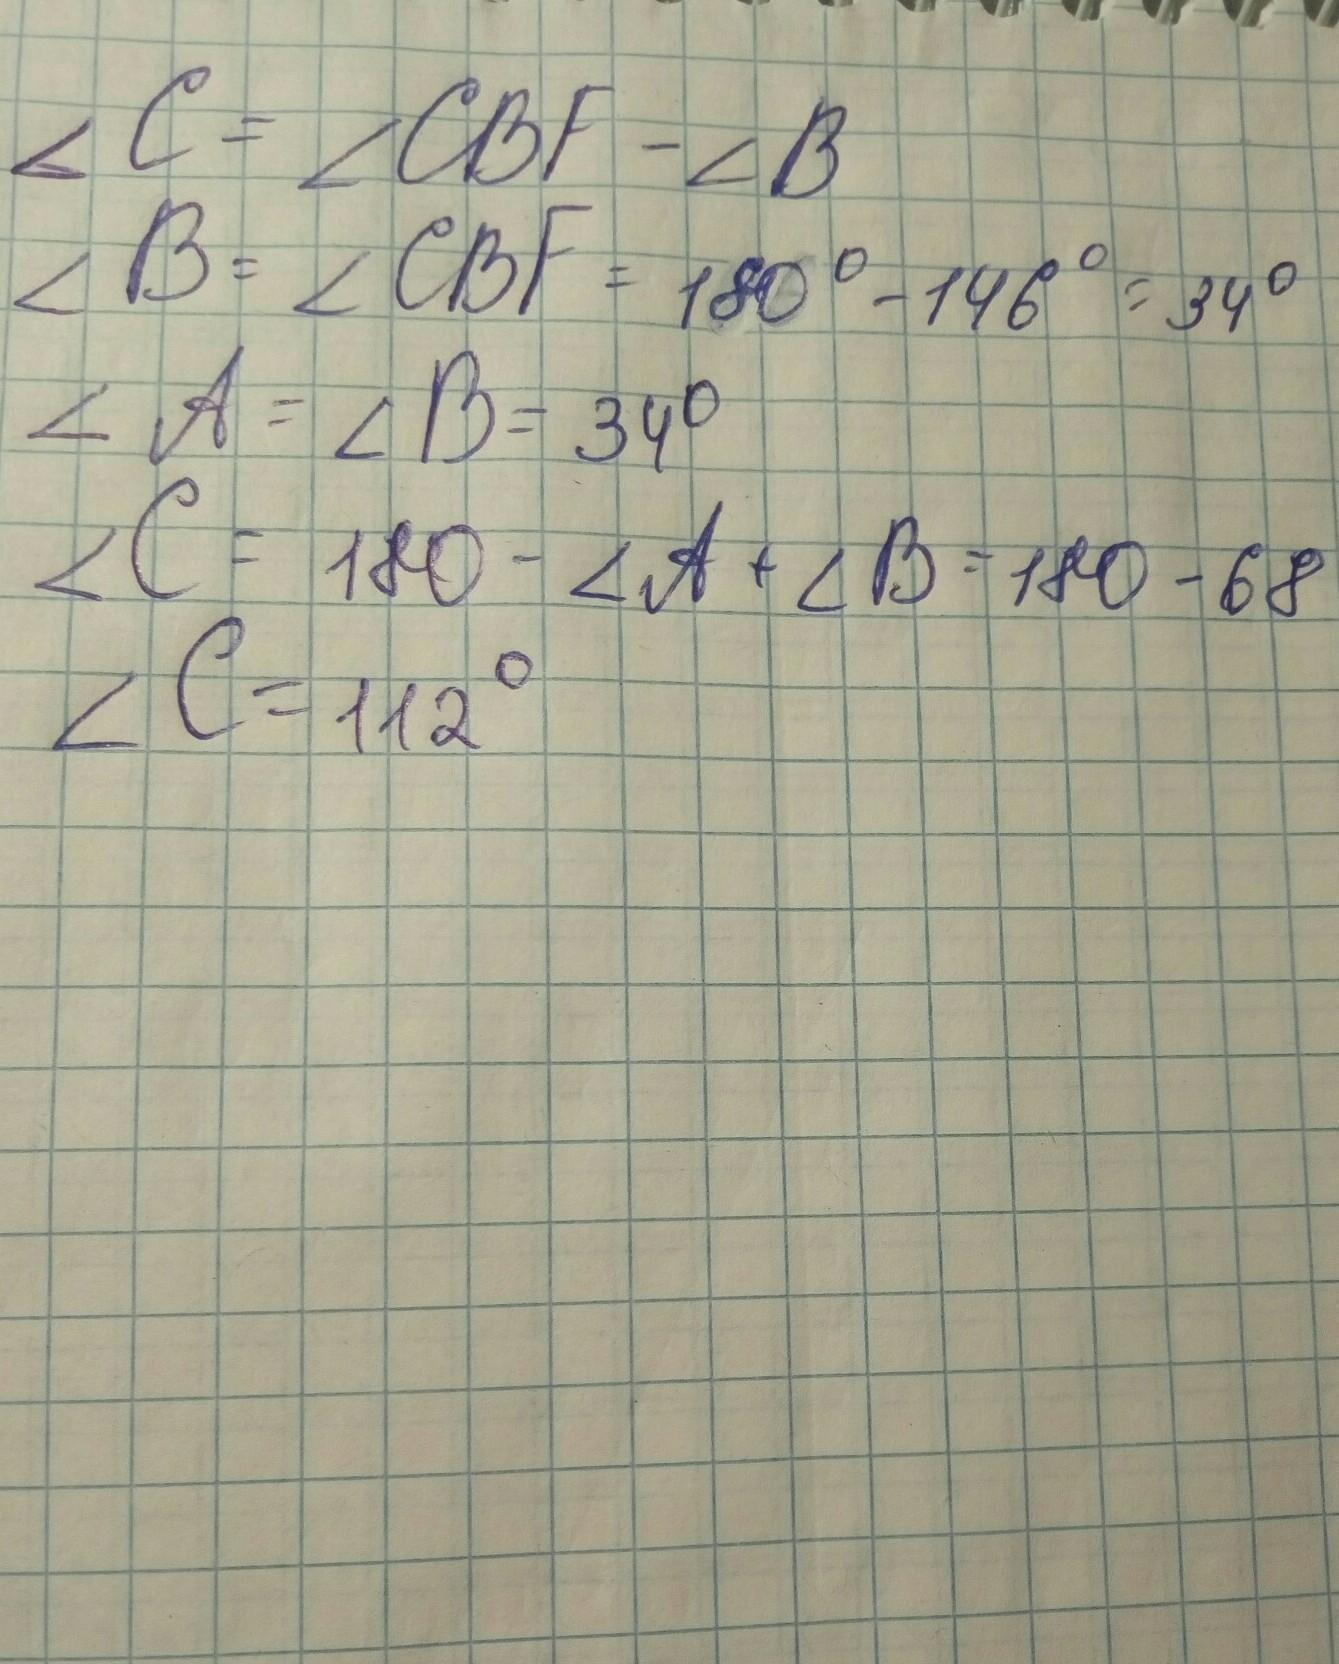 ∠C = ∠CBF - ∠B
∠B = ∠CBF = 180° - 146° = 34°
∠A = ∠B = 34°
∠C = 180 - ∠A + ∠B = 180 - 68
∠C = 112°